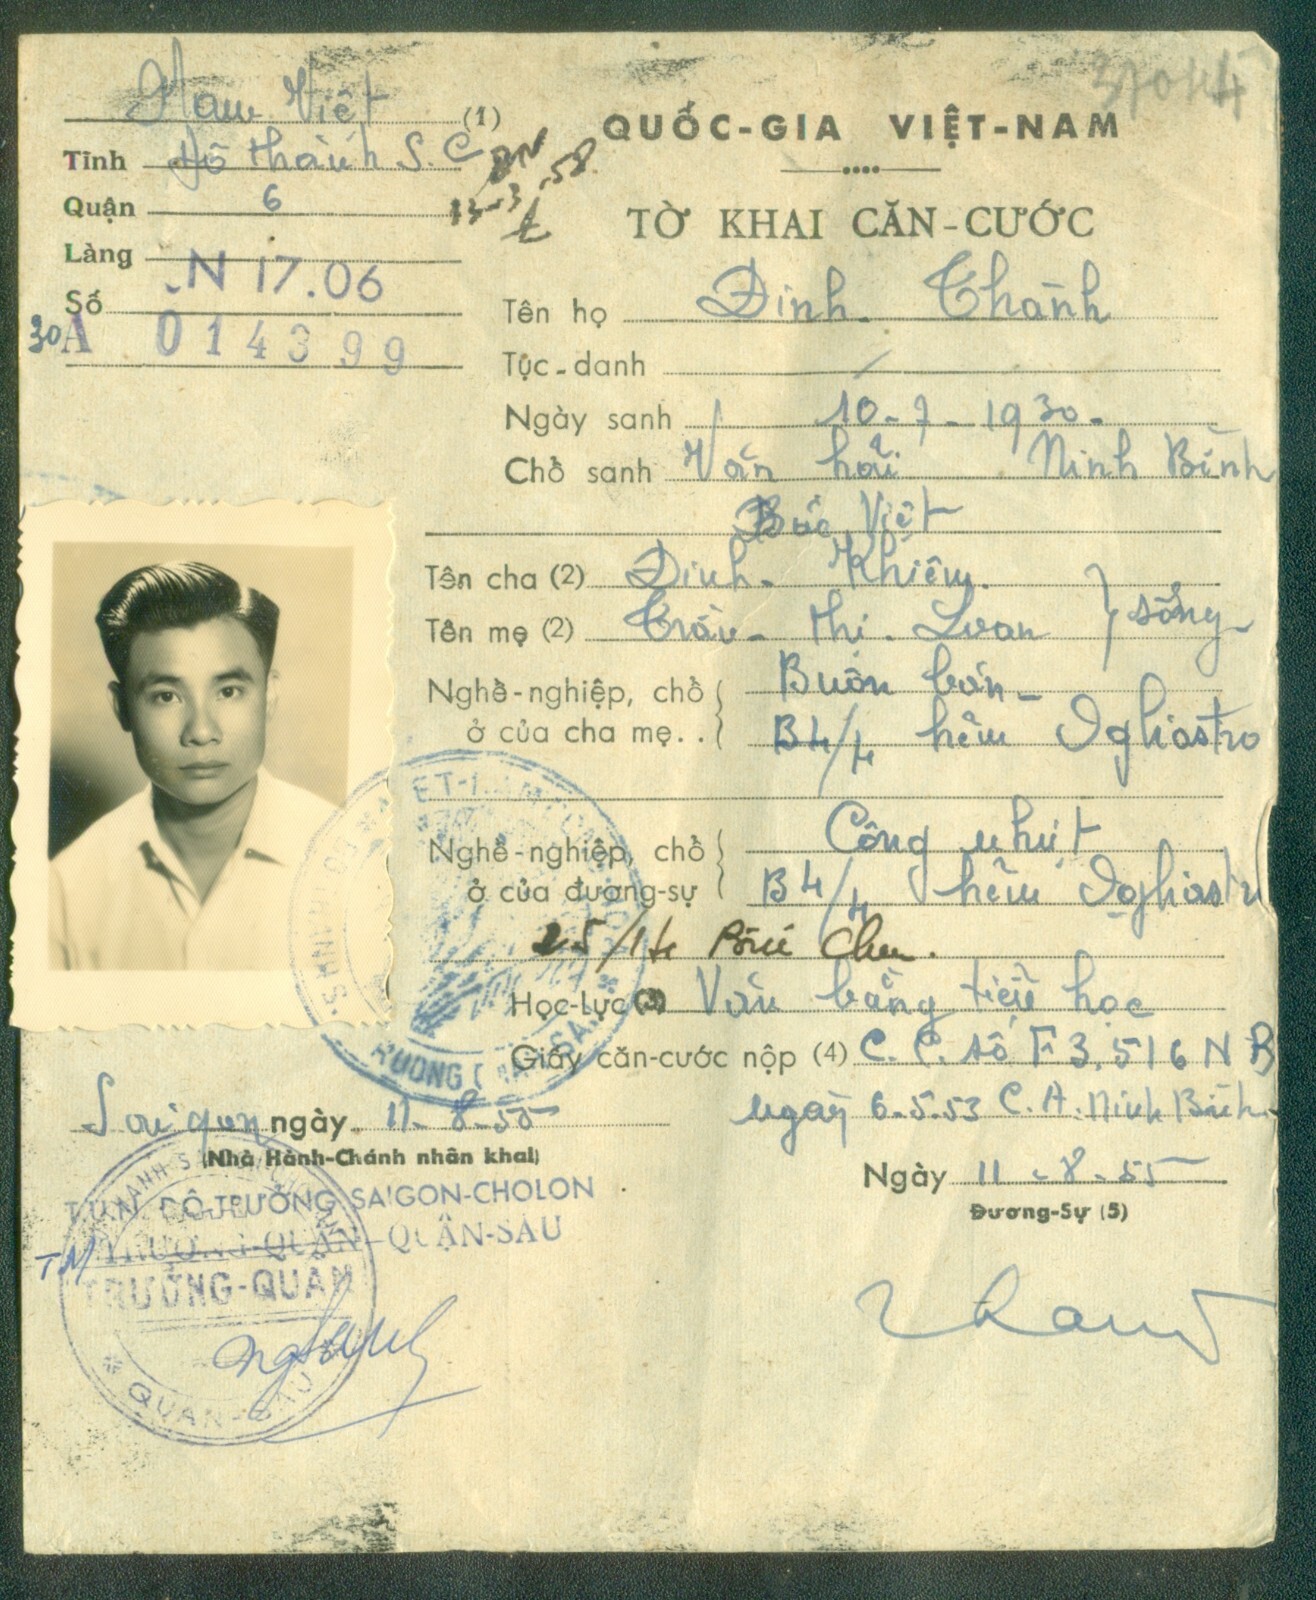 37044
Nam Việt (1)
Tỉnh Đô thành S.C
Quận 6
Làng
Số N 17.06
30A 014399
13-3-58
QUỐC-GIA VIỆT-NAM
TỜ KHAI CĂN-CƯỚC
Tên họ Đinh Thành
Tục-danh /
Ngày sanh 10-7-1930-
Chỗ sanh Văn hải Ninh Bình
Bắc Việt
Tên cha (2) Đinh Khiêm
Tên mẹ (2) Trần thị Loan } sống
Nghề-nghiệp, chỗ { Buôn bán
ở của cha mẹ.. { B4/4 hẻm Oghiastro
Nghề-nghiệp, chỗ { Công nhựt
ở của đương-sự { B4/4 hẻm Oghiast
25/14
Học-Lực (3) Văn bằng tiểu học
Giấy căn-cước nộp (4) C.C. số F3.516 NB
ngày 6-5-53 C.A. Ninh Bình
Saigon ngày 11-8-55
(Nhà Hành-Chánh nhân khai)
Ngày 11-8-55
Đương-Sự (5)
T.U.N. ĐÔ-TRƯỞNG SAIGON-CHOLON
TM TRƯỞNG-QUẬN QUẬN-SÁU
TRƯỞNG-QUẬN
QUẬN-SÁU